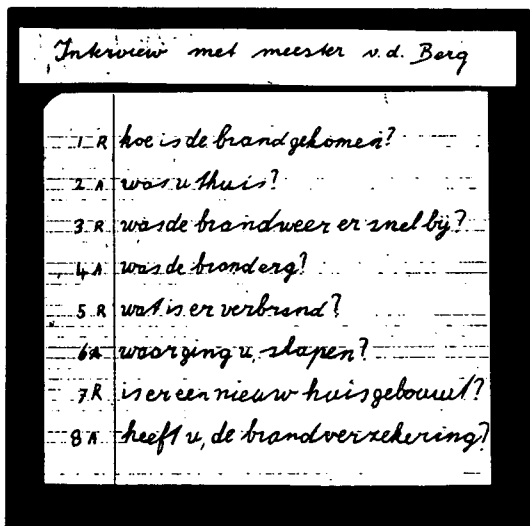 Interview met meester v.d. Berg
1 R hoe is de brand gekomen?
2 A was u thuis?
3 R was de brandweer er snel bij?
4 A was de brand erg?
5 R wat is er verbrand?
6 A waar ging u, slapen?
7 R is er een nieuw huis gebouwt?
8 A heeft u, de brandverzekering?